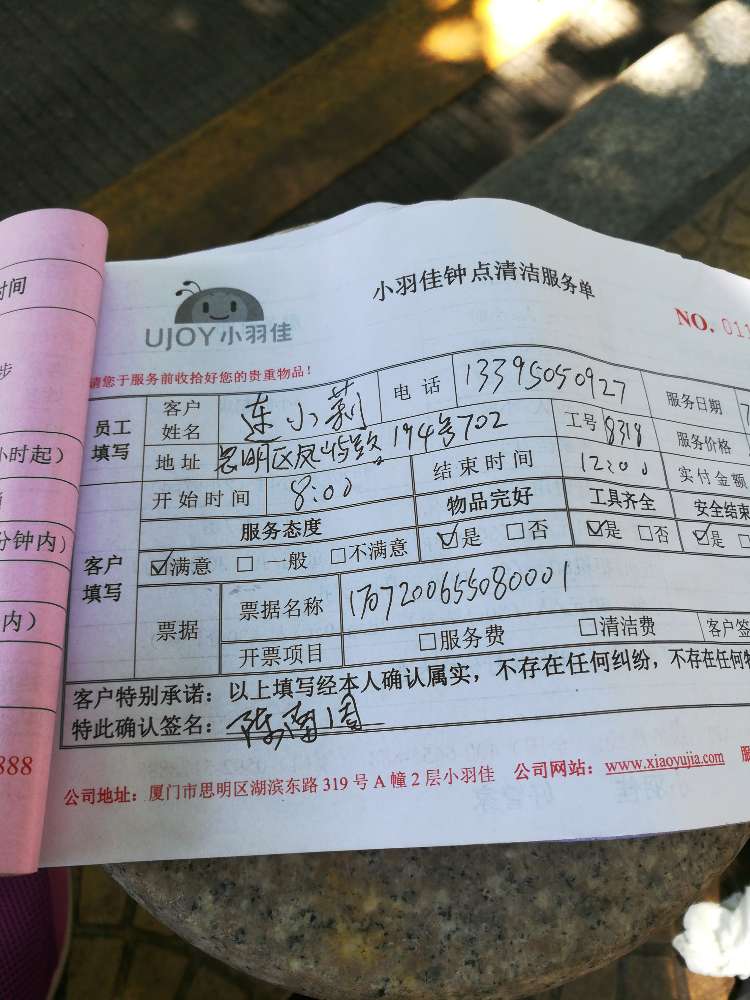 时间
步
小时起）
分钟内）
内）
888
UJOY小羽佳
小羽佳钟点清洁服务单
NO. 011
请您于服务前收拾好您的贵重物品！
员工填写 客户姓名 连小莉 电话 13395050927 服务日期
地址 思明区凤屿路194号702 工号 8318 服务价格
开始时间 8:00 结束时间 12:00 实付金额
客户填写 服务态度 物品完好 工具齐全 安全结束
☑满意 □一般 □不满意 ☑是 □否 ☑是 □否 ☑是
票据 票据名称 1707200655080001
开票项目 □服务费 □清洁费 客户签
客户特别承诺：以上填写经本人确认属实，不存在任何纠纷，不存在任何
特此确认签名：
公司地址：厦门市思明区湖滨东路319号A幢2层小羽佳 公司网站：www.xiaoyujia.com 服